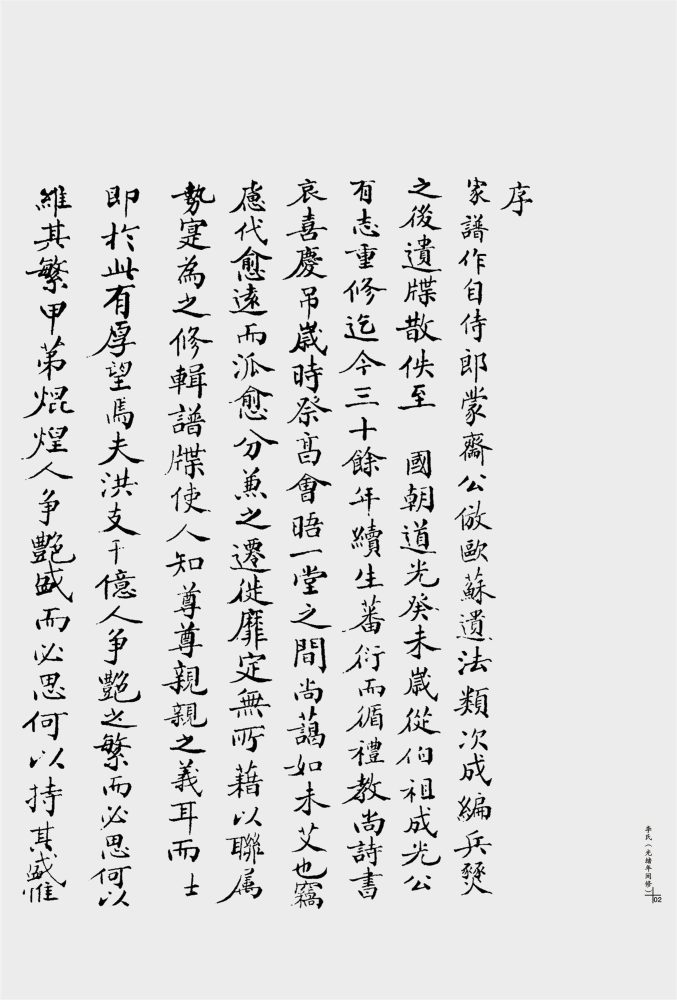 序
家譜作自侍郎蒙齋公倣歐蘇遺法類次成編兵燹
之後遺牒散佚至　國朝道光癸未歲從伯祖成光公
有志重修迄今三十餘年續生蕃衍而循禮教尚詩書
哀喜慶吊歲時祭高會晤一堂之間尚藹如未艾也竊
慮代愈遠而派愈分兼之遷徙靡定無所藉以聯属
勢寔為之修輯譜牒使人知尊尊親親之義耳而士
即於此有厚望焉夫洪支千億人爭艷之繁而必思何以
維其繁甲第焜煌人爭艷盛而必思何以持其盛惟
李氏（光緒年间修）
02